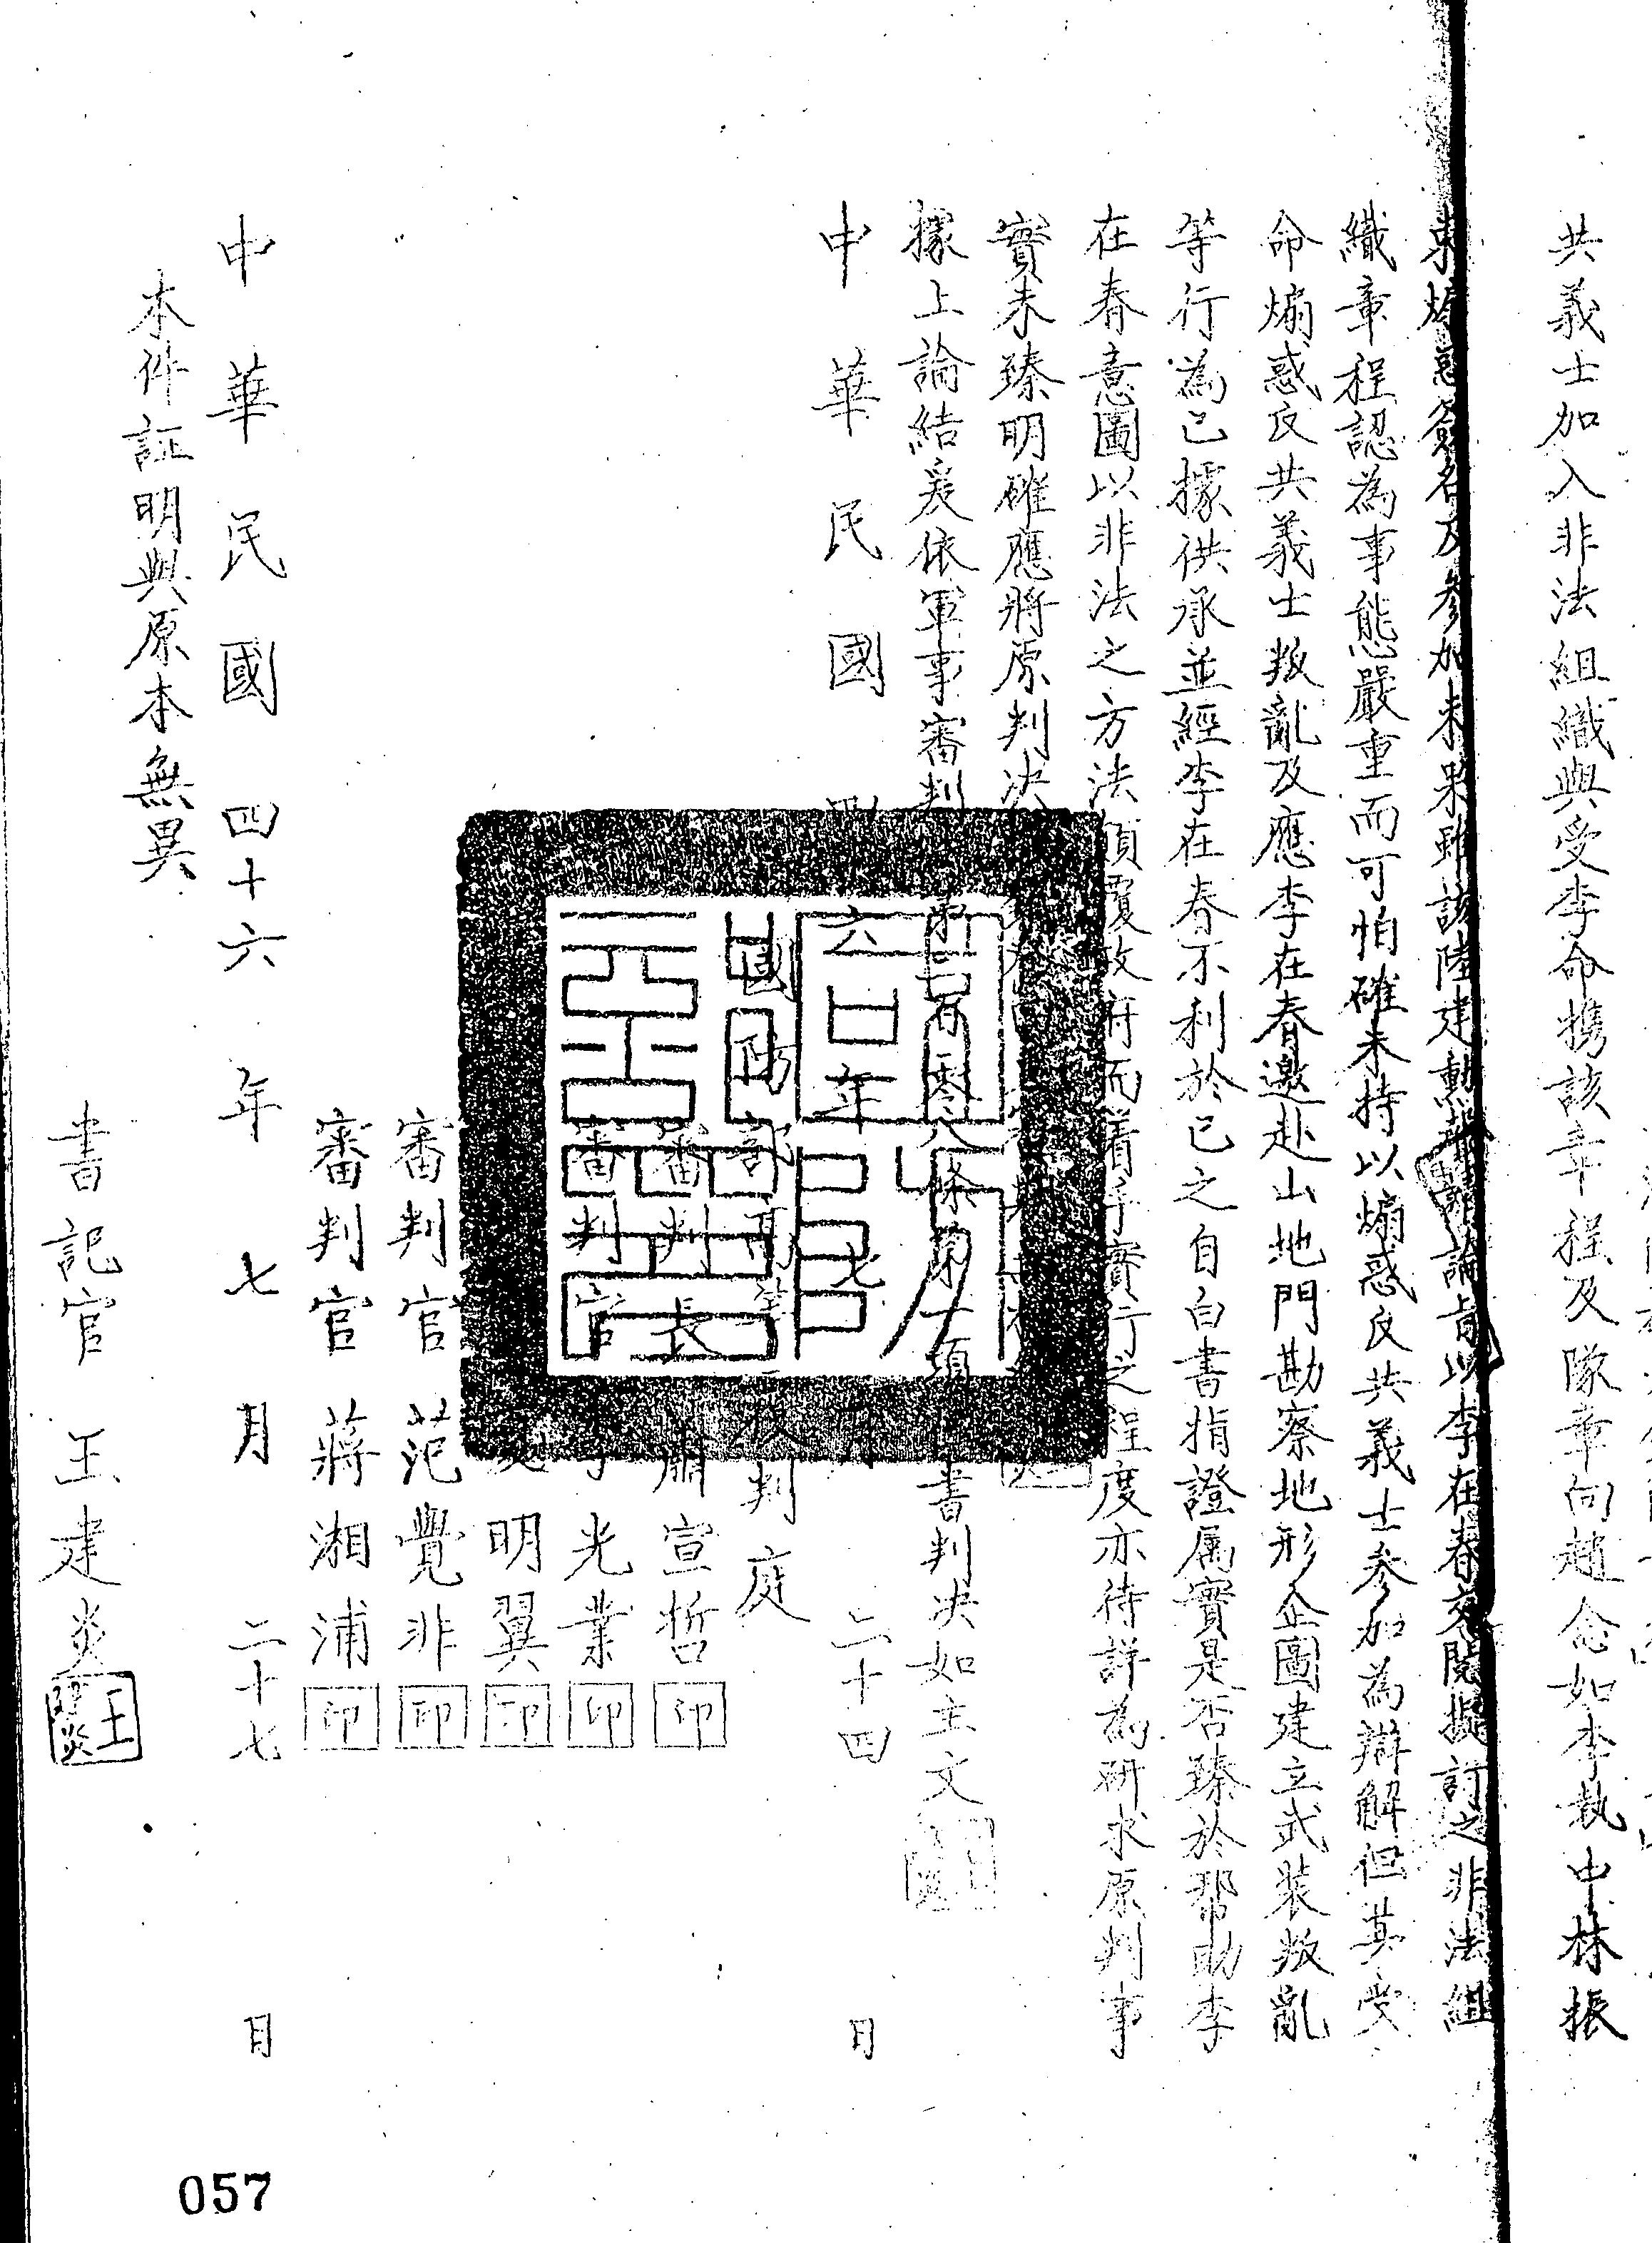 共義士加入非法組織與受李命携該章程及隊章向趙念如李執中林振
東煽惑簽名及參加未果雖該陸建勳辯論旨以李在春交閱擬訂之非法組
織章程認為事態嚴重而可怕確未持以煽惑反共義士參加為辯解但其受
命煽惑反共義士叛亂及應李在春邀赴山地門勘察地形企圖建立武装叛亂
等行為已據供承並經李在春不利於己之自白書指證属實是否臻於幫助李
在春意圖以非法之方法顛覆政府而着手實行之程度亦待詳為研求原判事
實未臻明確應將原判决
據上論結爰依軍事審判第二百零八條第一項書判决如主文
中華民國四六年七月二十四日
國防部高等覆判庭
審判長周宣哲印
審判官光業印
明翼印
審判官范覺非印
審判官蔣湘浦印
中華民國四十六年七月二十七日
本件証明與原本無異
書記官王建炎
057